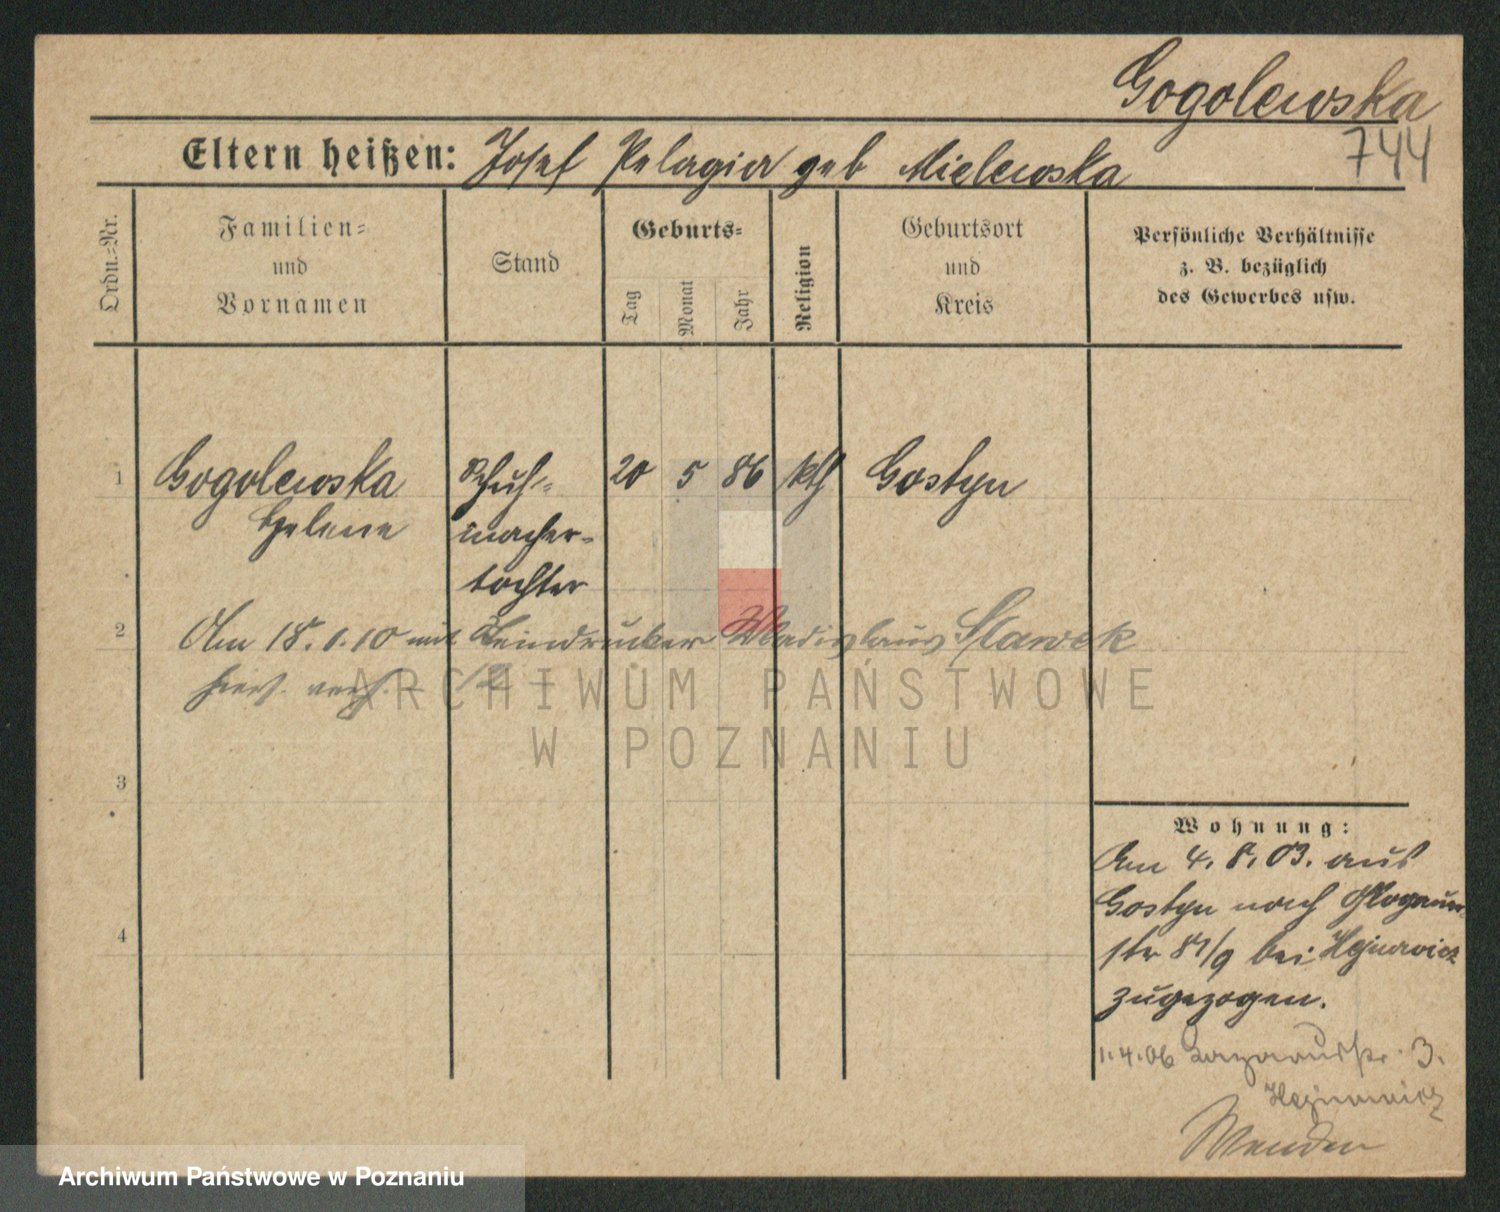 Gogolewska
744
Eltern heißen: Josef Pelagia geb Mielewska
Ordn.-Nr.
Familien-
und
Vornamen
Stand
Geburts-
Tag
Monat
Jahr
Religion
Geburtsort
und
Kreis
Persönliche Verhältnisse
z. B. bezüglich
des Gewerbes usw.
1 Gogolewska Schuh- 20 5 86 kth Gostyn
Helene macher-
tochter
2 Am 18.1.10 mit Steindrucker Wladislaus Slawek
hiers. verh. - 12 -
ARCHIWUM PAŃSTWOWE
W POZNANIU
3
4
Wohnung:
Am 4.8.03. aus
Gostyn nach Glogauer-
str 87/9 bei Hejnowicz
zugezogen.
1.4.06 Lazarusstr. 3.
Hejnowicz
Wenden
Archiwum Państwowe w Poznaniu